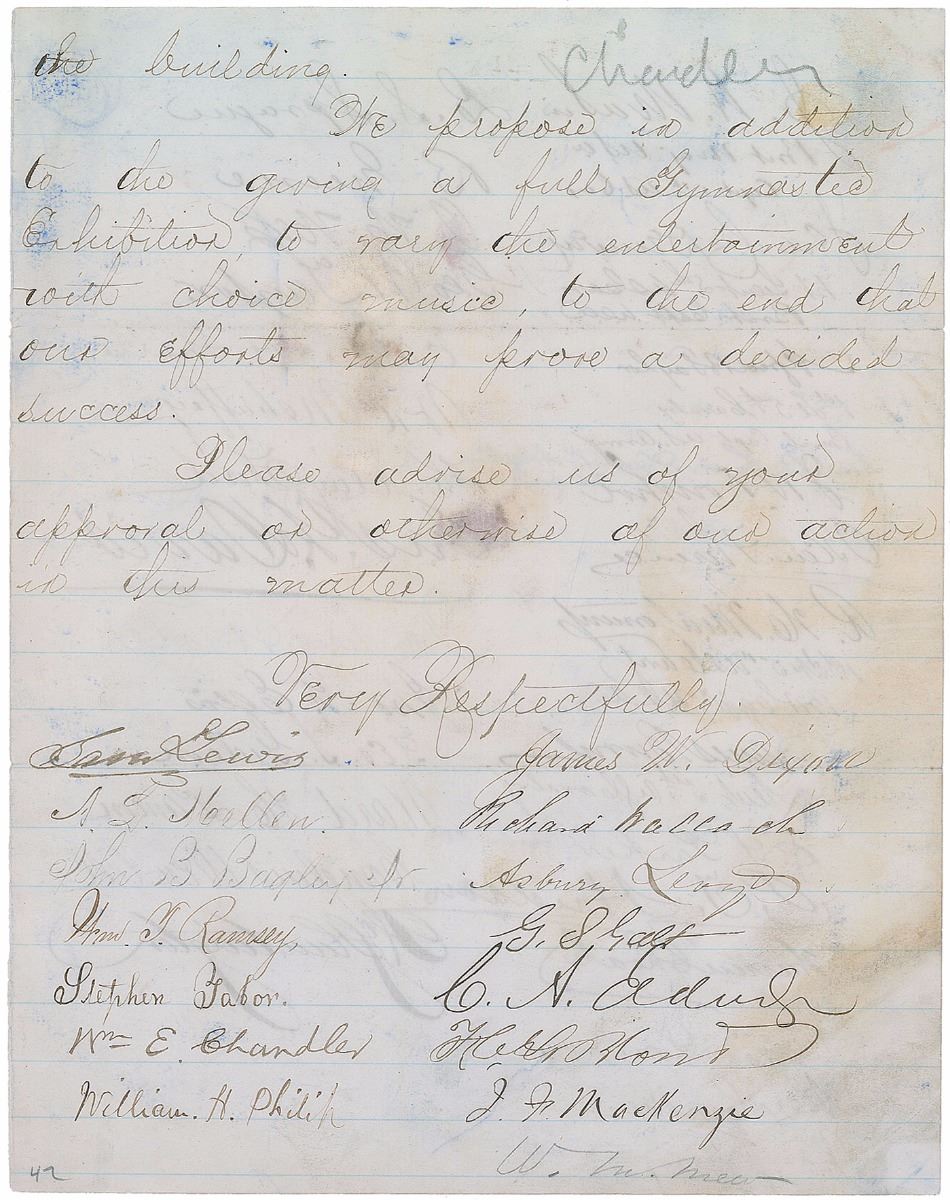 the building.
Chandler
We propose in addition
to the giving a full Gymnastic
Exhibition, to vary the entertainment
with choice music, to the end that
our efforts may prove a decided
success.
Please advise us of your
approval or otherwise of our action
in this matter.
Very Respectfully.
Sam Lewis
James W. Dixon
Richard Wallach
John B Bagley Jr.
Asbury Lloyd
Wm. T. Ramsey,
G. S
Stephen Tabor.
C. A.
Wm E. Chandler
William. H. Philip
J. F. MacKenzie
W. M. Mew
42